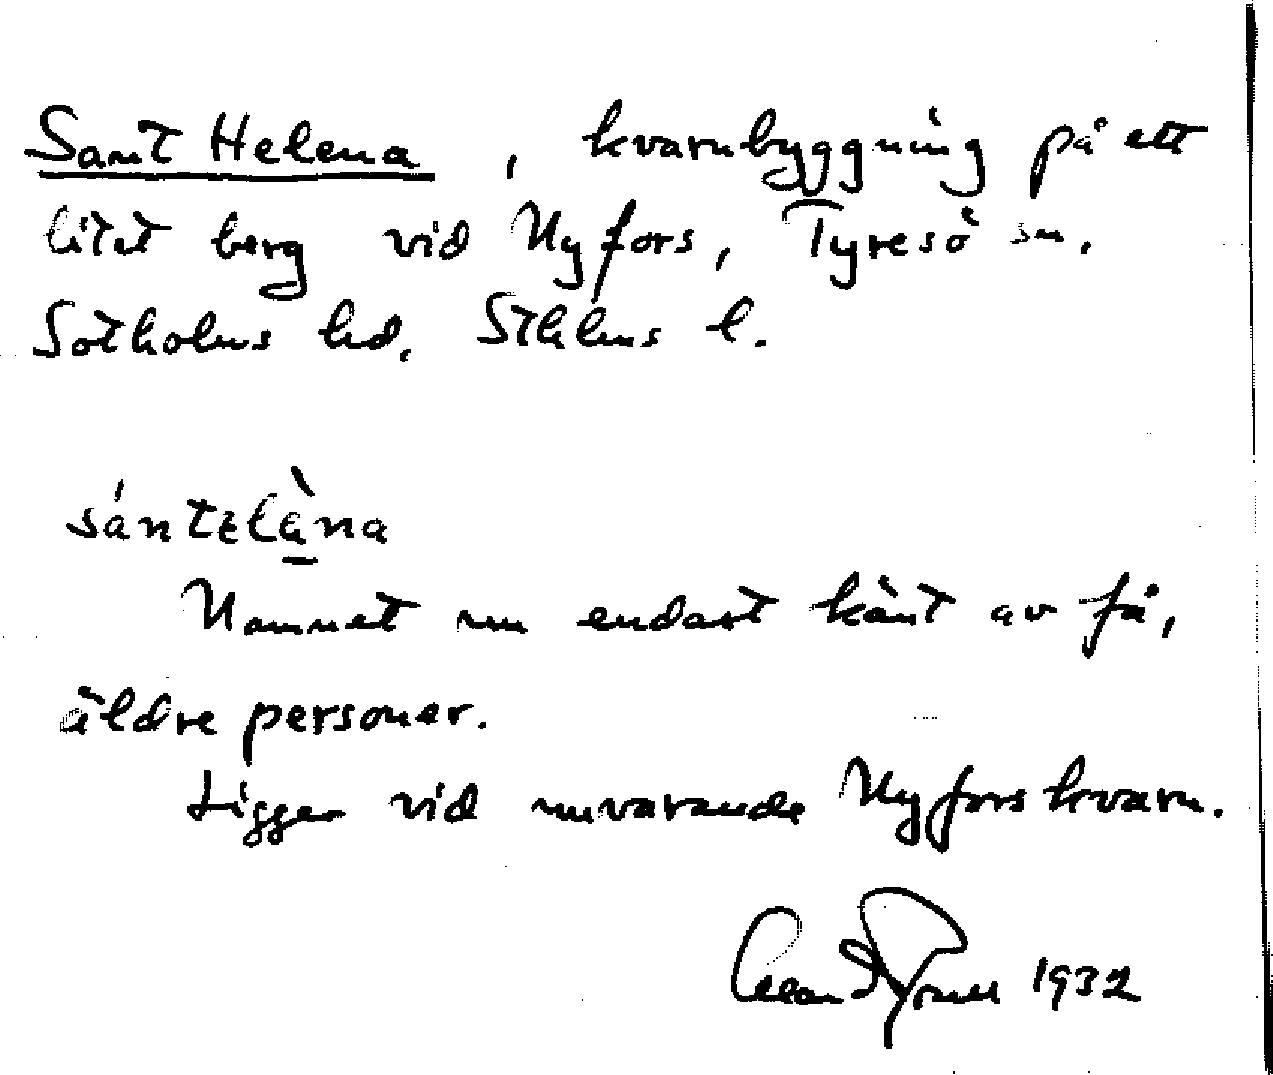 Sant Helena, kvarnbyggning på ett
litet berg vid Nyfors, Tyresö sn.
Sotholms hd. Sthlms l.
Namnet nu endast känt av få,
äldre personer.
Ligger vid nuvarande Nyfors kvarn.
1932